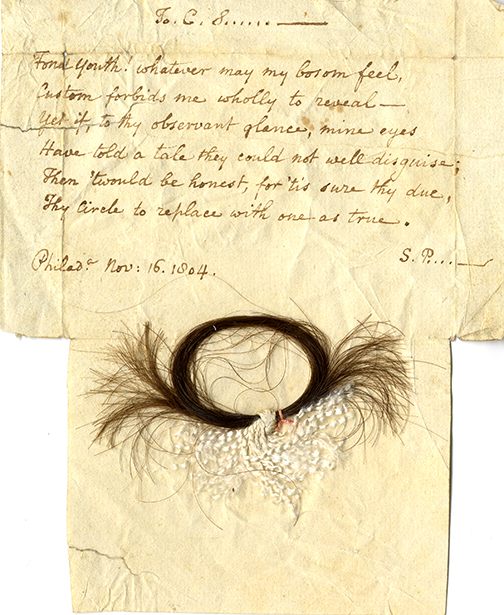 To. C. S...... —
Fond Youth! whatever may my bosom feel,
Custom forbids me wholly to reveal—
Yet if, to thy observant glance, mine eyes
Have told a tale they could not well disguise;
Then 'twould be honest, for 'tis sure thy due,
Thy Circle to replace with one as true.
S. P....—
Philada Nov: 16. 1804.